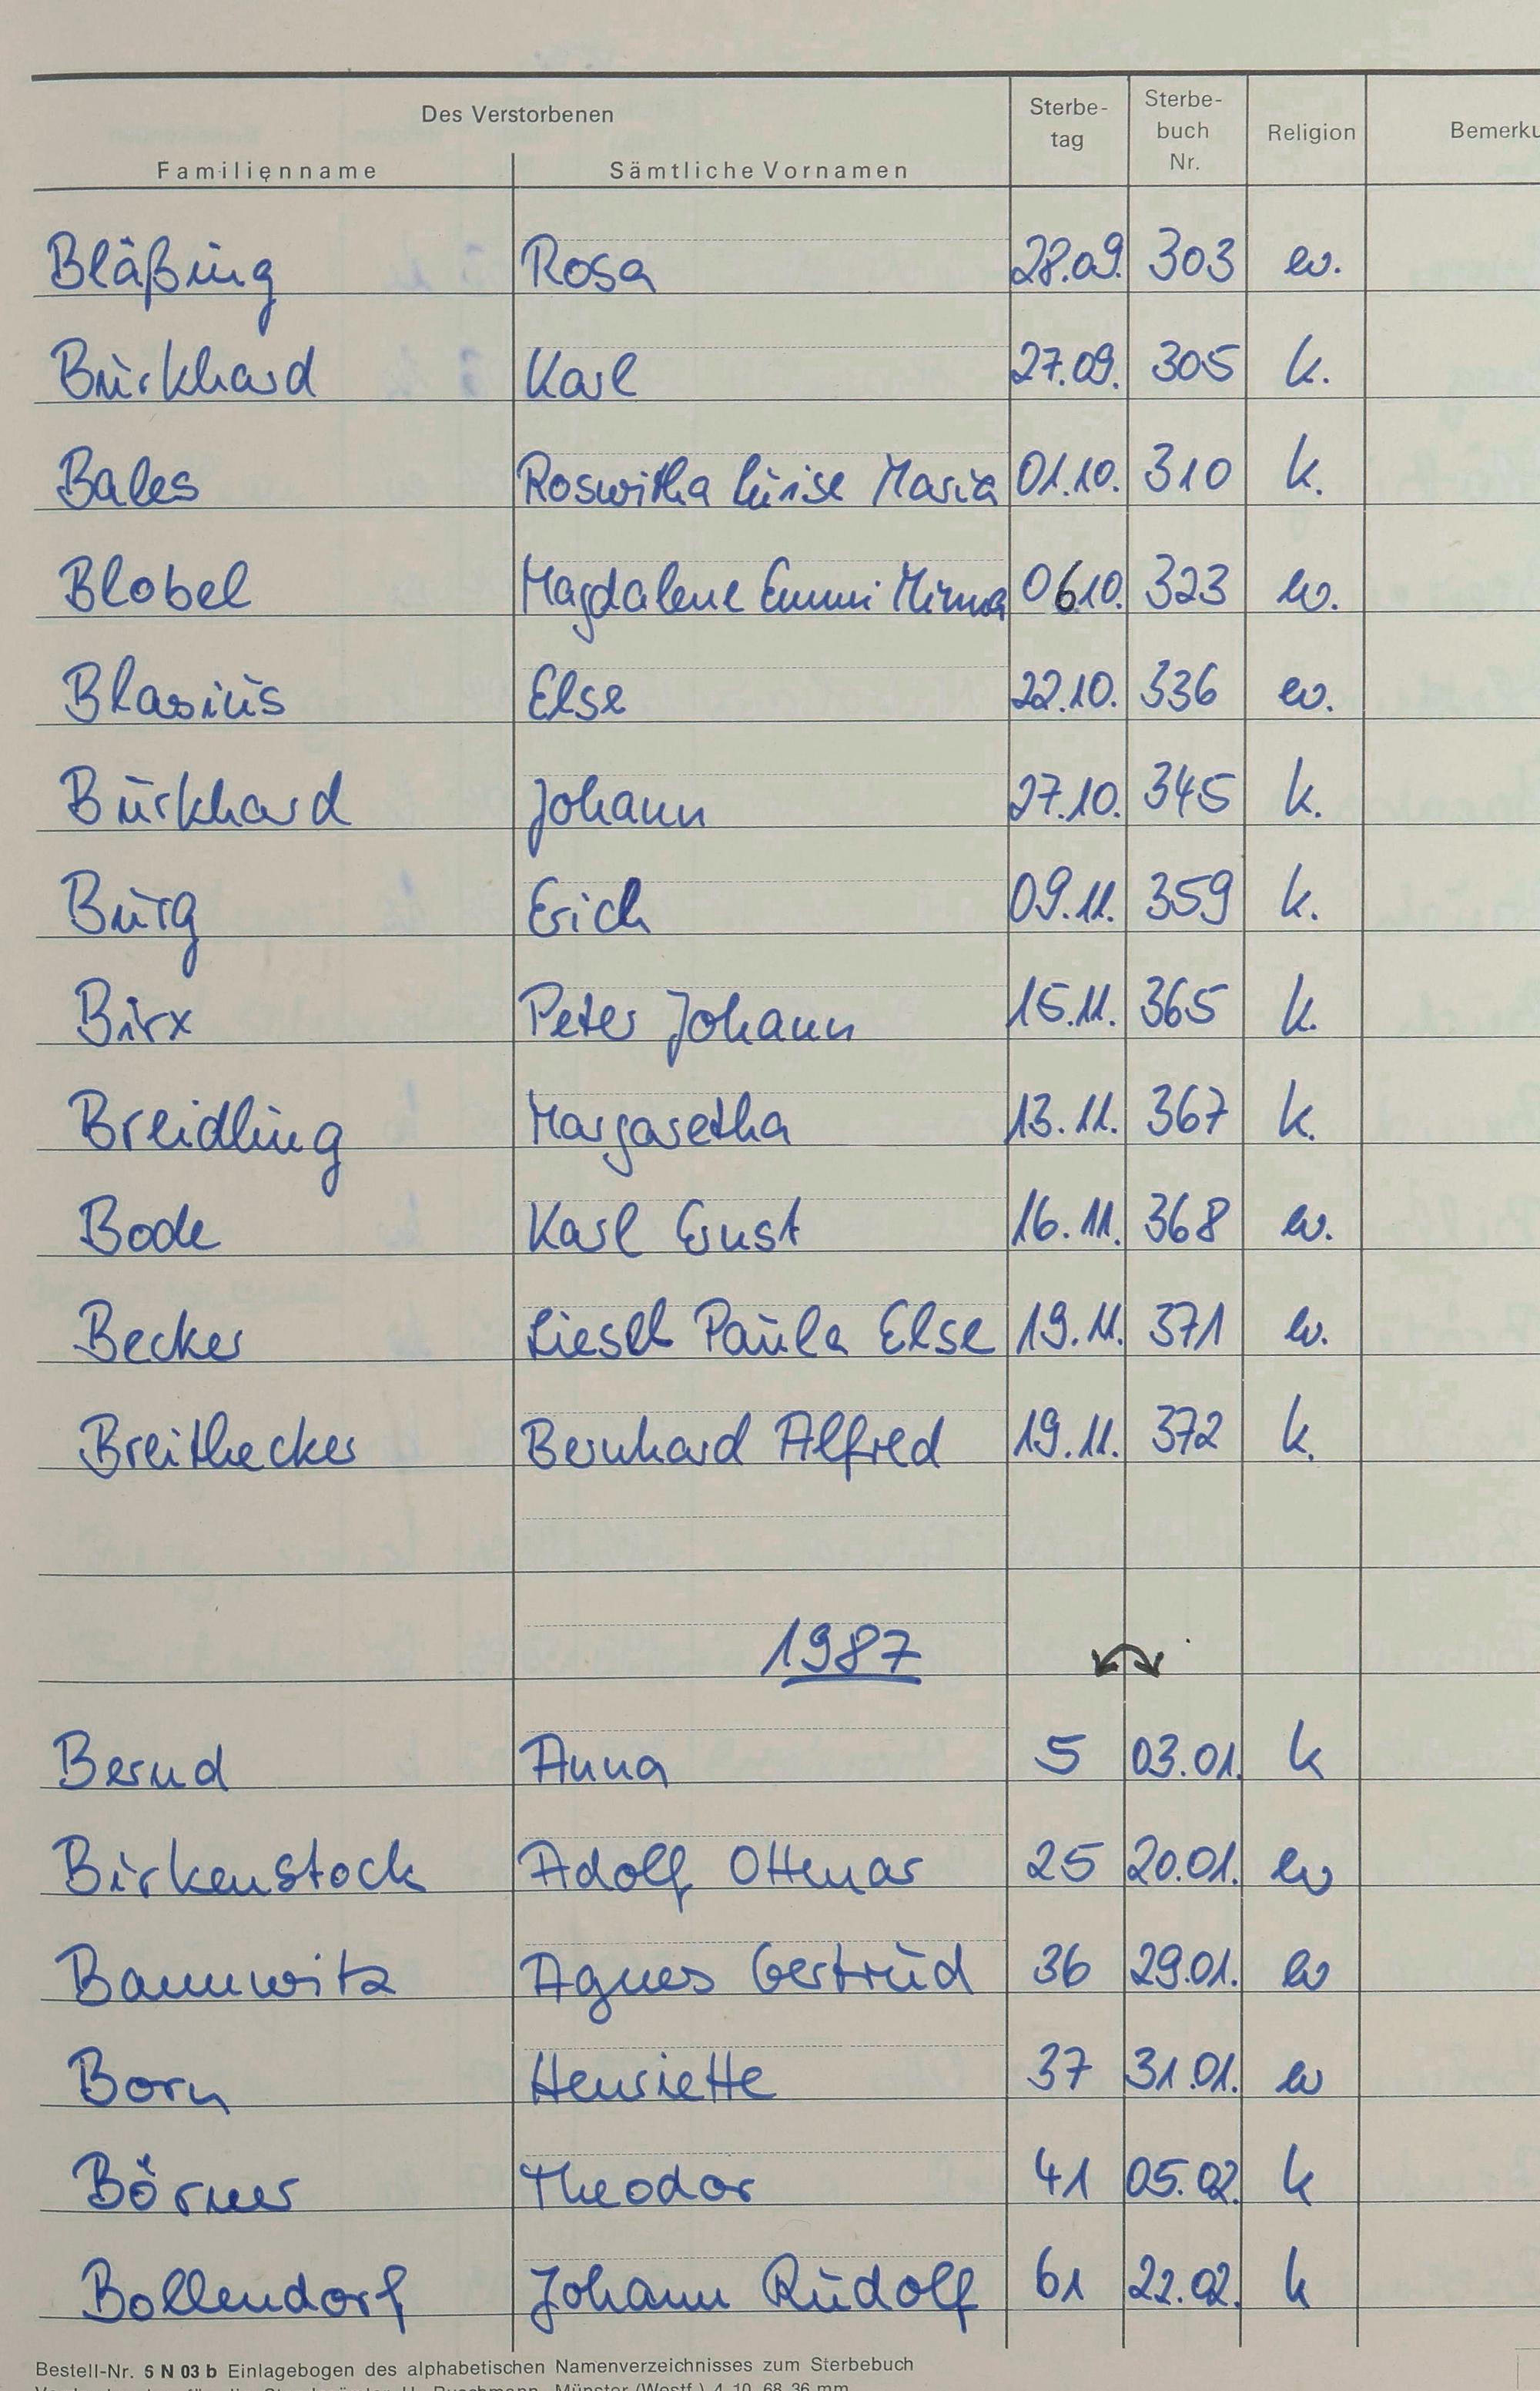 Des Verstorbenen
Familienname Sämtliche Vornamen Sterbe-tag Sterbe-buch Nr. Religion Bemerku
Bläßing Rosa 28.09. 303 ev.
Burkhard Karl 27.09. 305 k.
Bales Roswitha Luise Maria 01.10. 310 k.
Blobel Magdalene Emmi Minna 06.10. 323 ev.
Blasius Else 22.10. 336 ev.
Burkhard Johann 27.10. 345 k.
Burg Erich 09.11. 359 k.
Birx Peter Johann 15.11. 365 k.
Breidling Margaretha 13.11. 367 k.
Bode Karl Ernst 16.11. 368 ev.
Becker Liesel Paula Else 19.11. 371 ev.
Breithecker Bernhard Alfred 19.11. 372 k.
1987
Bernd Anna 5 03.01. k
Birkenstock Adolf Ottmar 25 20.01. ev
Baumwitz Agnes Gertrud 36 29.01. ev
Born Henriette 37 31.01. ev
Börner Theodor 41 05.02. k
Bollendorf Johann Rudolf 61 22.02. k
Bestell-Nr. 6 N 03 b Einlagebogen des alphabetischen Namenverzeichnisses zum Sterbebuch
Münster (Westf.) 4 10 68 36 mm